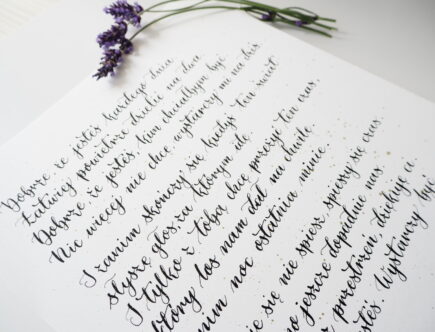 Dobrze, że jesteś każdego dnia
Łatwiej powiedzie drwić na dwa
Dobrze, że jesteś, kim chciałbym być
Nic więcej nie chcę, wystarczy mi na dziś
I zanim skończy się kiedyś ten świat
słyszę głos, za którym idę.
I tylko z Tobą chcę przeżyć ten czas,
który los nam dał na chwilę,
nim noc ostatnia minie.
się nie spiesz, spieszy się czas.
jeszcze dopadnie nas.
przestrzeń, buduje ją
Wystarczy być